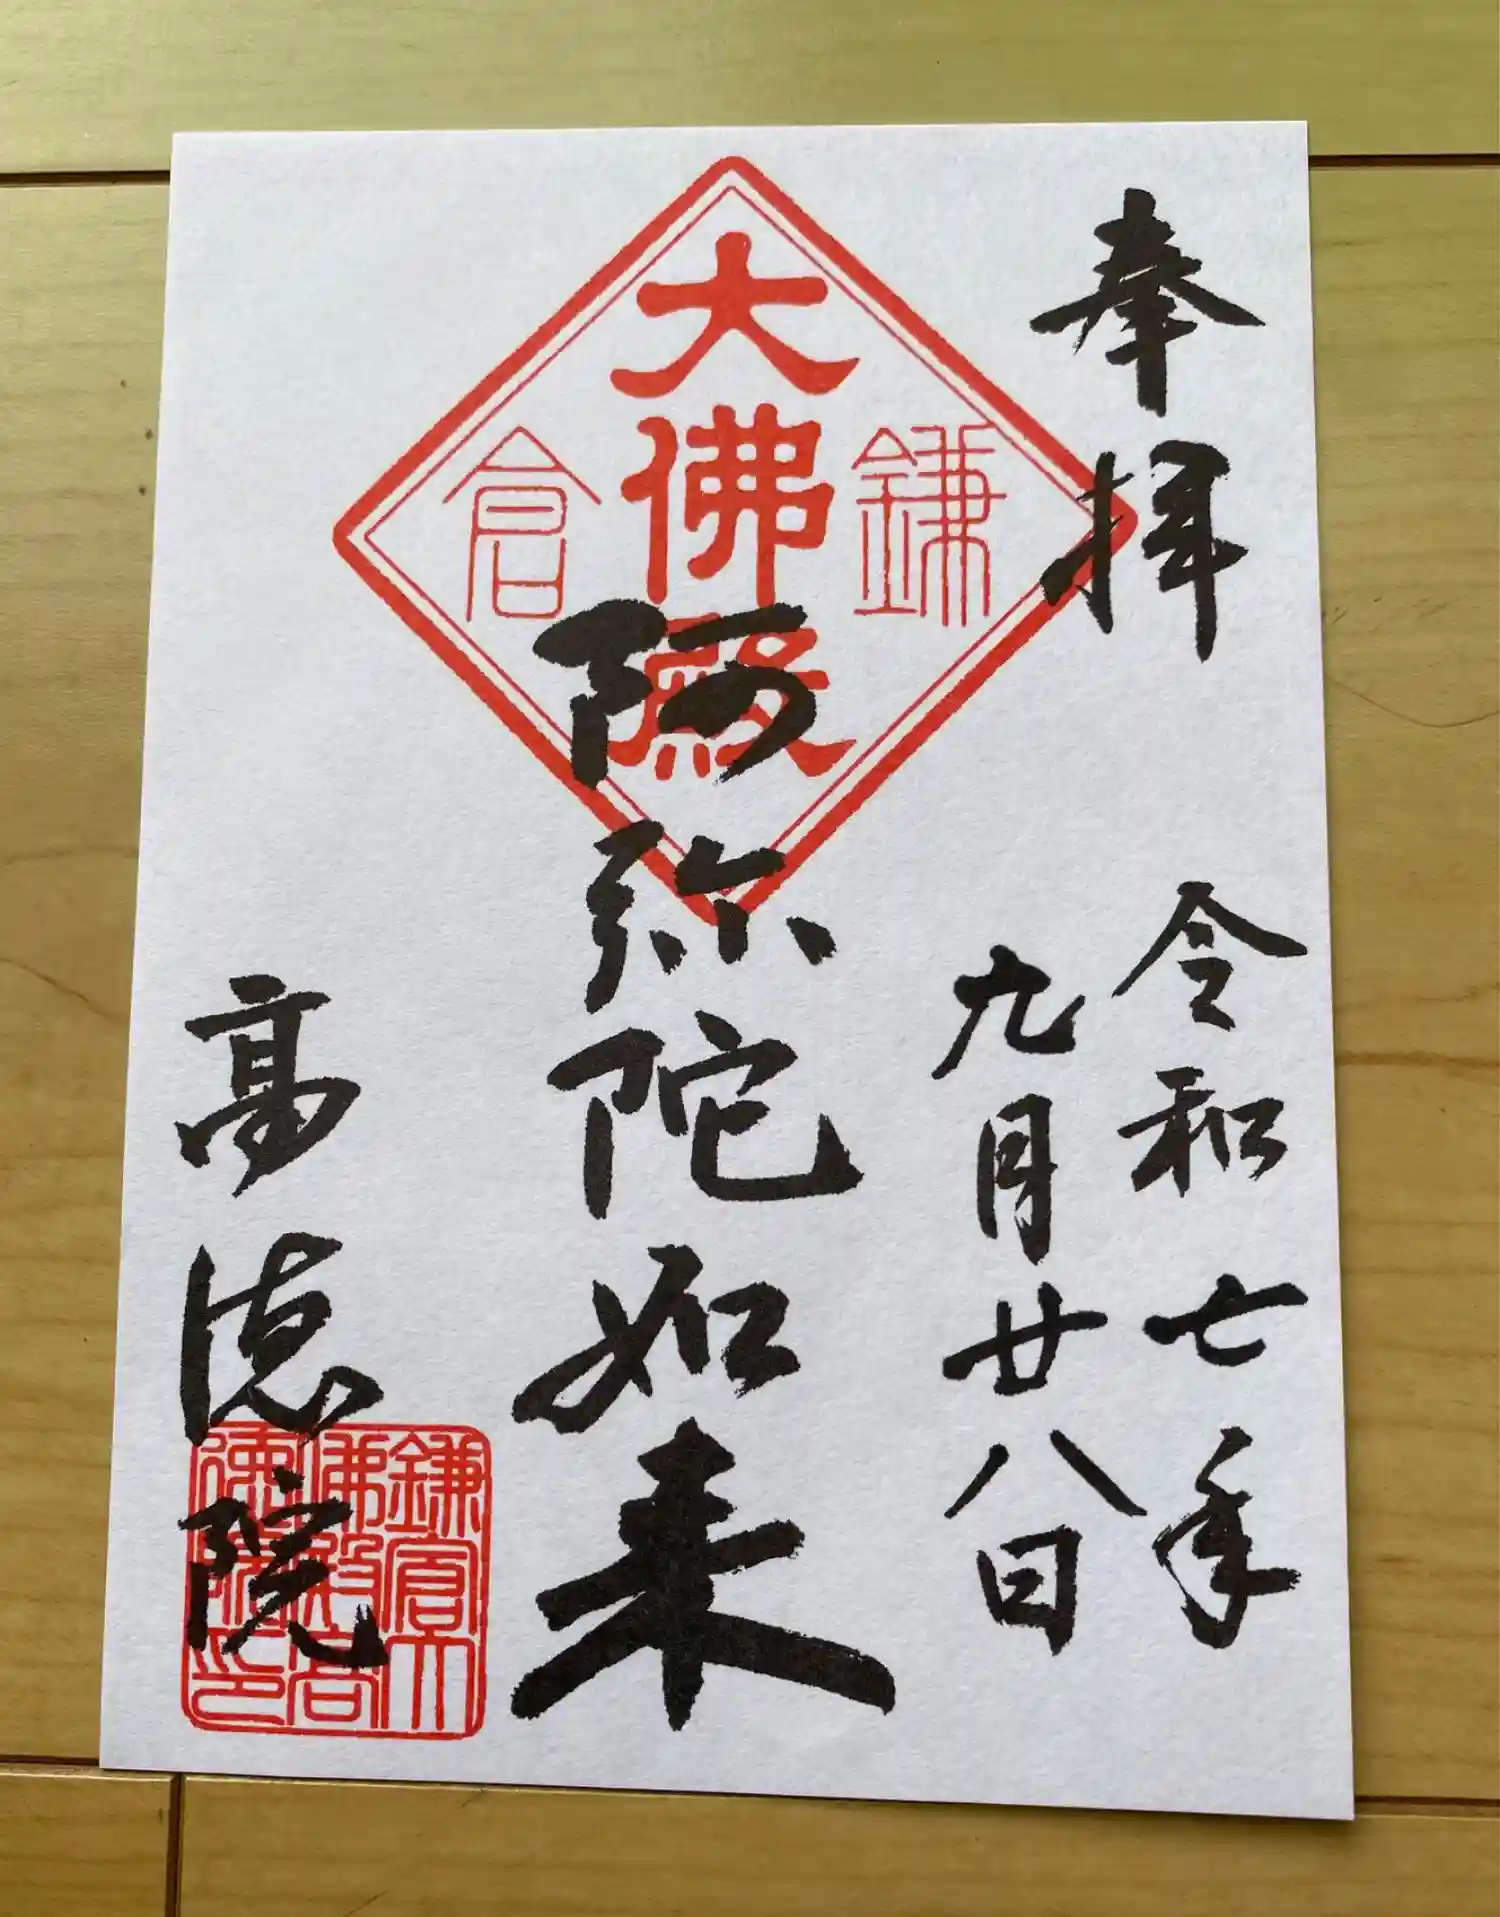 奉拝
令和七年
九月廿八日
鎌倉
大佛殿
阿弥陀如来
高徳院
鎌倉大
佛殿高
徳院印